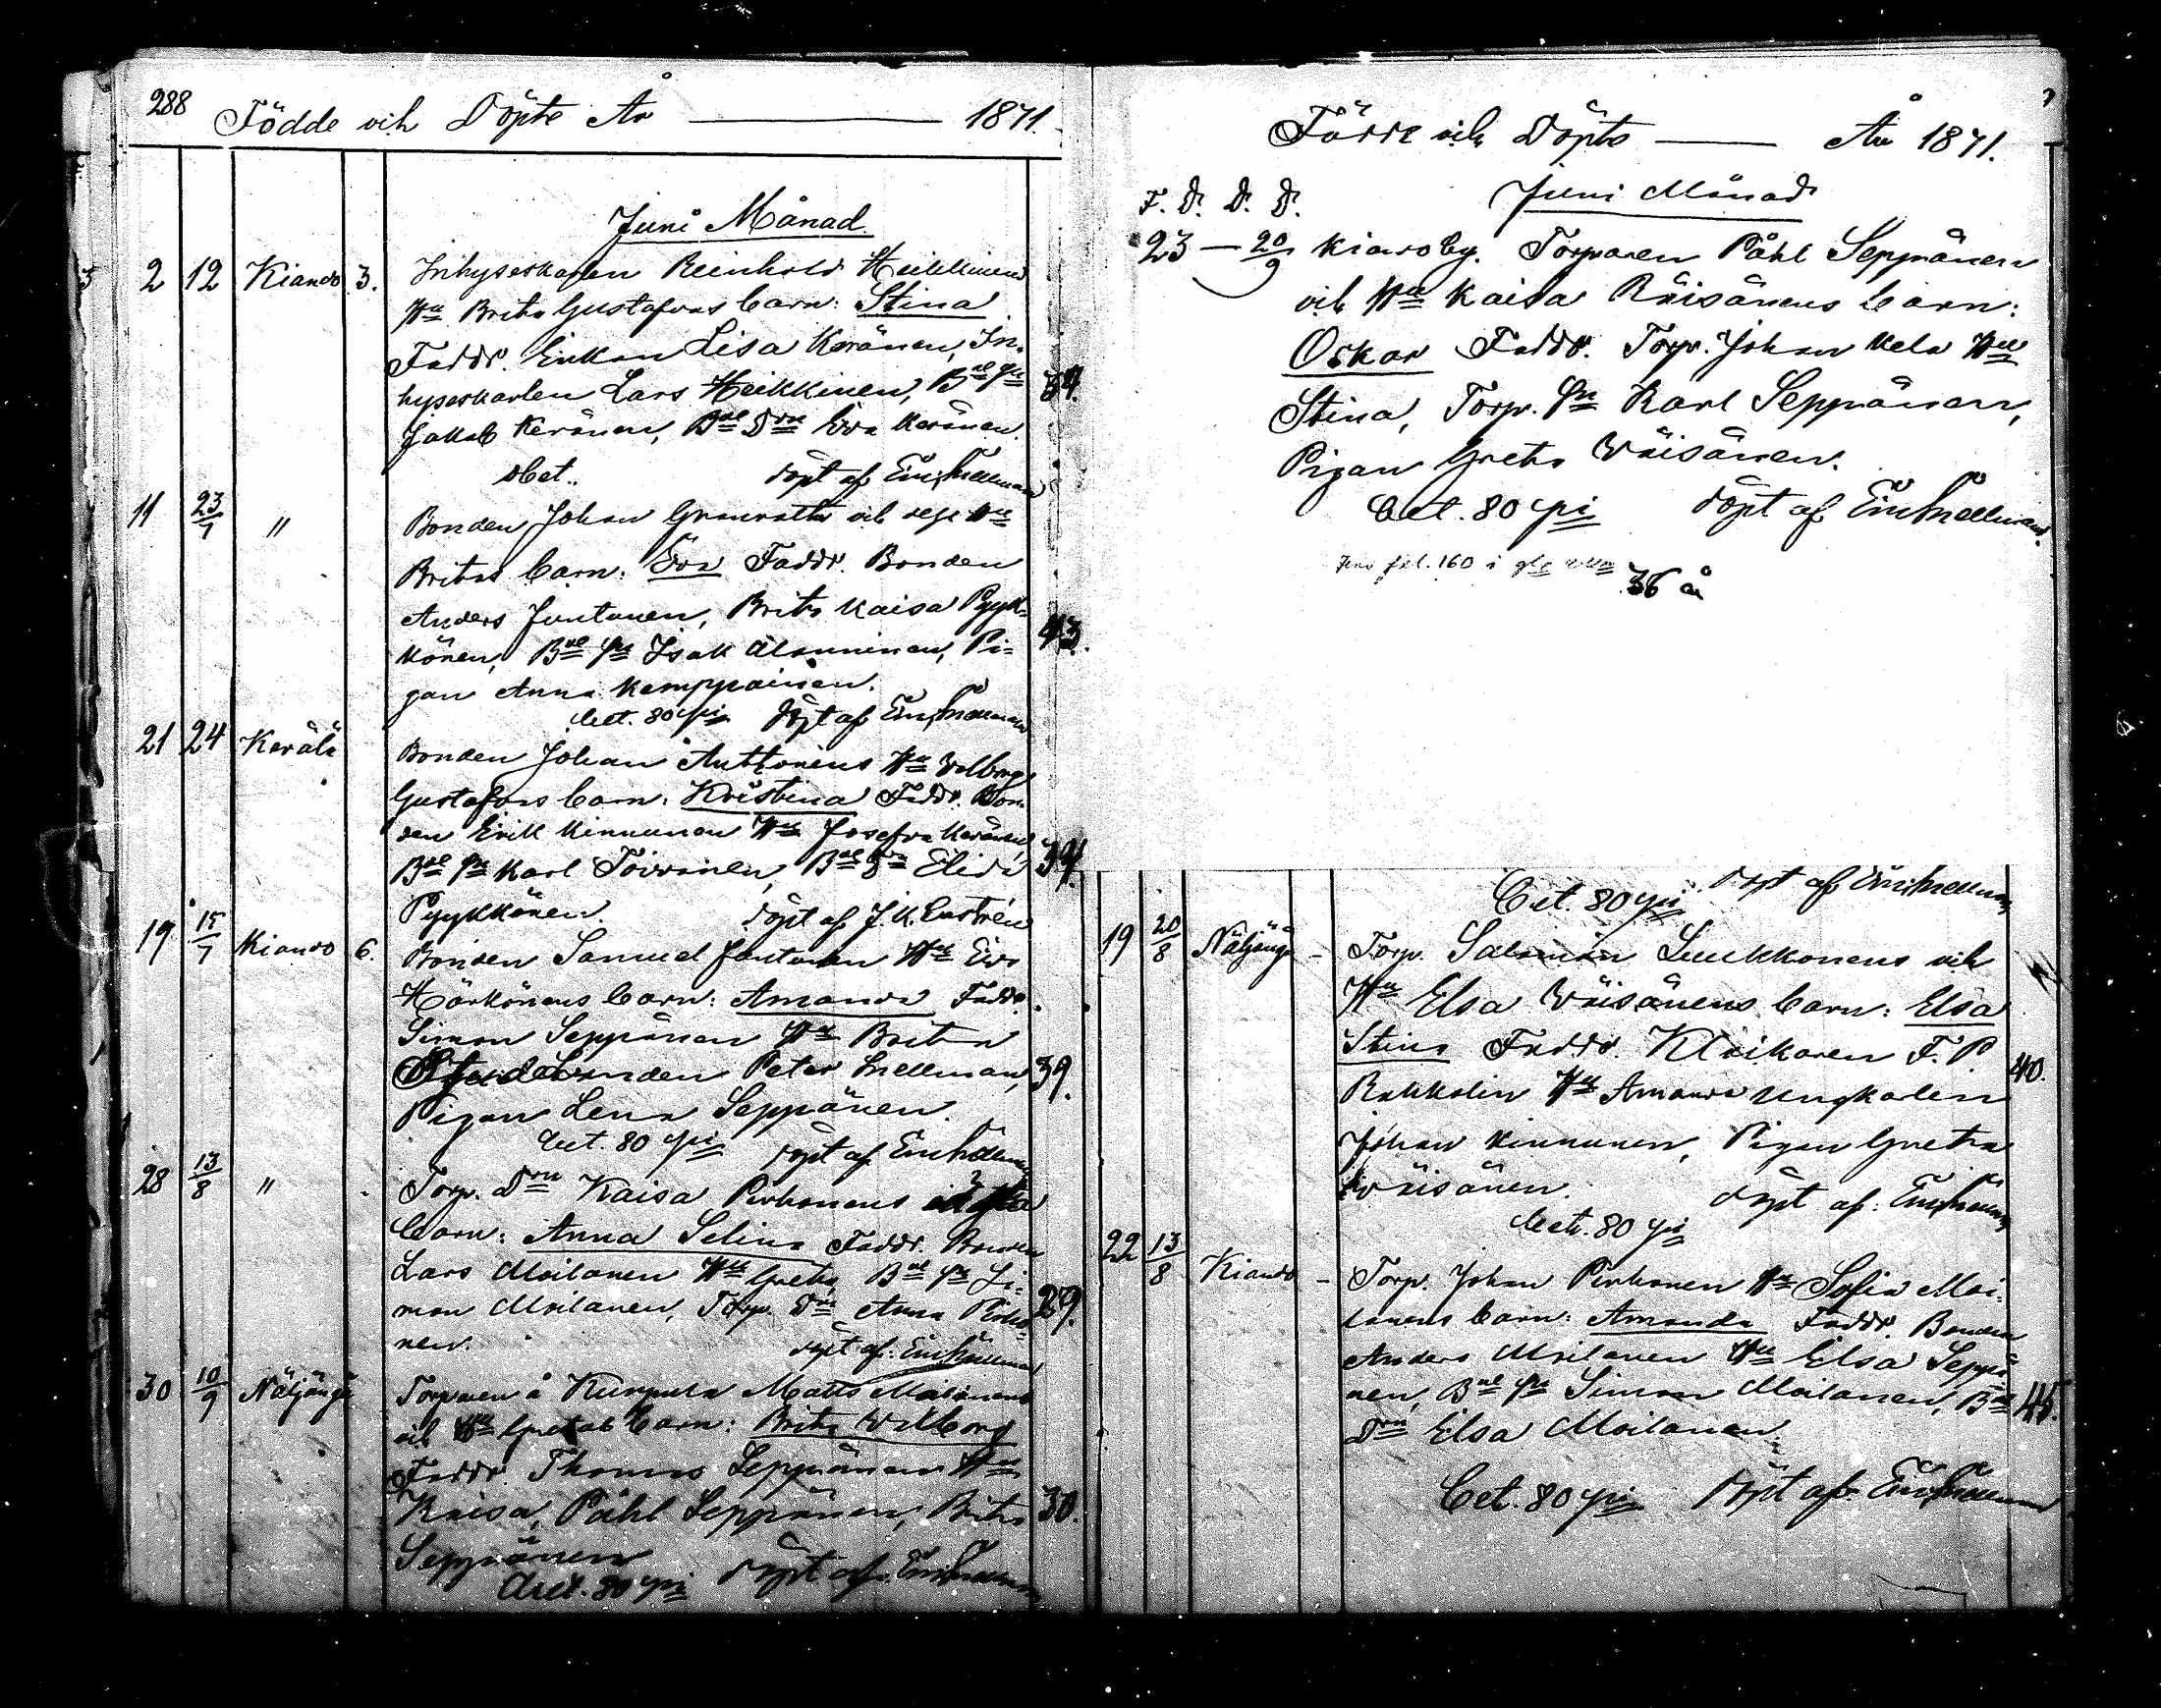 288 Födde och Döpte År 1871.
Juni Månad.
2 12 Kiando 3. Inhyseskarlen Reinhold Heikkinens
Hu Brita Gustafvas barn: Stina
Faddr. Enkan Lisa Keränen, In-
hyseskarlen Lars Heikkinen, Bde Sn 34.
Jakob Keränen, Bde Drn Eva Keränen.
obet. döpt af Em. Snellman
11 23/7 " Bonden Johan Granroths och dess Hu
Britas barn: Eva Faddr. Bonden
Anders Juntunen, Brita Kaisa Pyyk-
könen, Bde Sn Isak Manninen, Pi- 43.
gan Anna Kemppainen.
bet. 80 pi döpt af Em. Snellman
21 24 Kerälä Bonden Johan Anttonens Hu Walborg
Gustafvas barn: Kristina Faddr. Bon-
den Erik Kinnunen Hu Josefva Keränen,
Bde Sn Karl Toivanen, Bde Dr Elida 34.
Pyykkönen. döpt af J. K. Castrén
19 15/7 Kiando 6. Bonden Samuel Juntunen Hu Eva
Härkönens barn: Amanda Faddr.
Simon Seppänen Hu Brita
Studeranden Peter Snellman, 39.
Pigan Lena Seppänen.
bet. 80 pi döpt af Em. Snellman
28 13/8 " Torp. Drn Kaisa Pirhonens
barn: Anna Selina Faddr. Bonden
Lars Moilanen Hu Greta, Bde Sn Si-
mon Moilanen, Torp. Drn Anna Pirho- 29.
nen. döpt af: Em. Snellman
30 10/9 Näljänge Torparen å Kurpula Matts Moilanens
och Hu Gretas barn: Brita Walborg
Faddr. Thomas Seppänen Hu
Kaisa, Påhl Seppänen, Brita 30.
Seppänen
bet. 80 pi döpt af. Em. Snellman
Födde och Döpte År 1871.
Juni Månad
F. D. D. D.
23 — 20/9 Kiandoby. Torparen Påhl Seppänen
och Hu Kaisa Räisänens barn:
Oskar Faddr. Torp. Johan Kela Hu
Stina, Torp. Sn Karl Seppänen,
Pigan Greta Wäisänen.
bet. 80 pi döpt af Em. Snellman.
fol. 160 i
36 å
bet 80 pi döpt af Em. Snellman
19 20/8 Näljänge – Torp. Salomon Luukkonens och
Hu Elsa Wäisänens barn: Elsa
Stina Faddr. Klockaren F. P.
Rukkolin Hu Amanda Ungkarlen 40.
Johan Kinnunen, Pigan Greta
Wäisänen. döpt af: Em. Snellman
bet. 80 pi
22 13/8 Kiando – Torp. Johan Pirhonen Hu Sofia Moi-
lanens barn: Amanda Faddr. Bonden
Anders Moilanen Hu Elsa Seppä-
nen, Bde Sn Simon Moilanen, Bde 45.
Drn Elsa Moilanen.
bet. 80 pi döpt af Em. Snellman